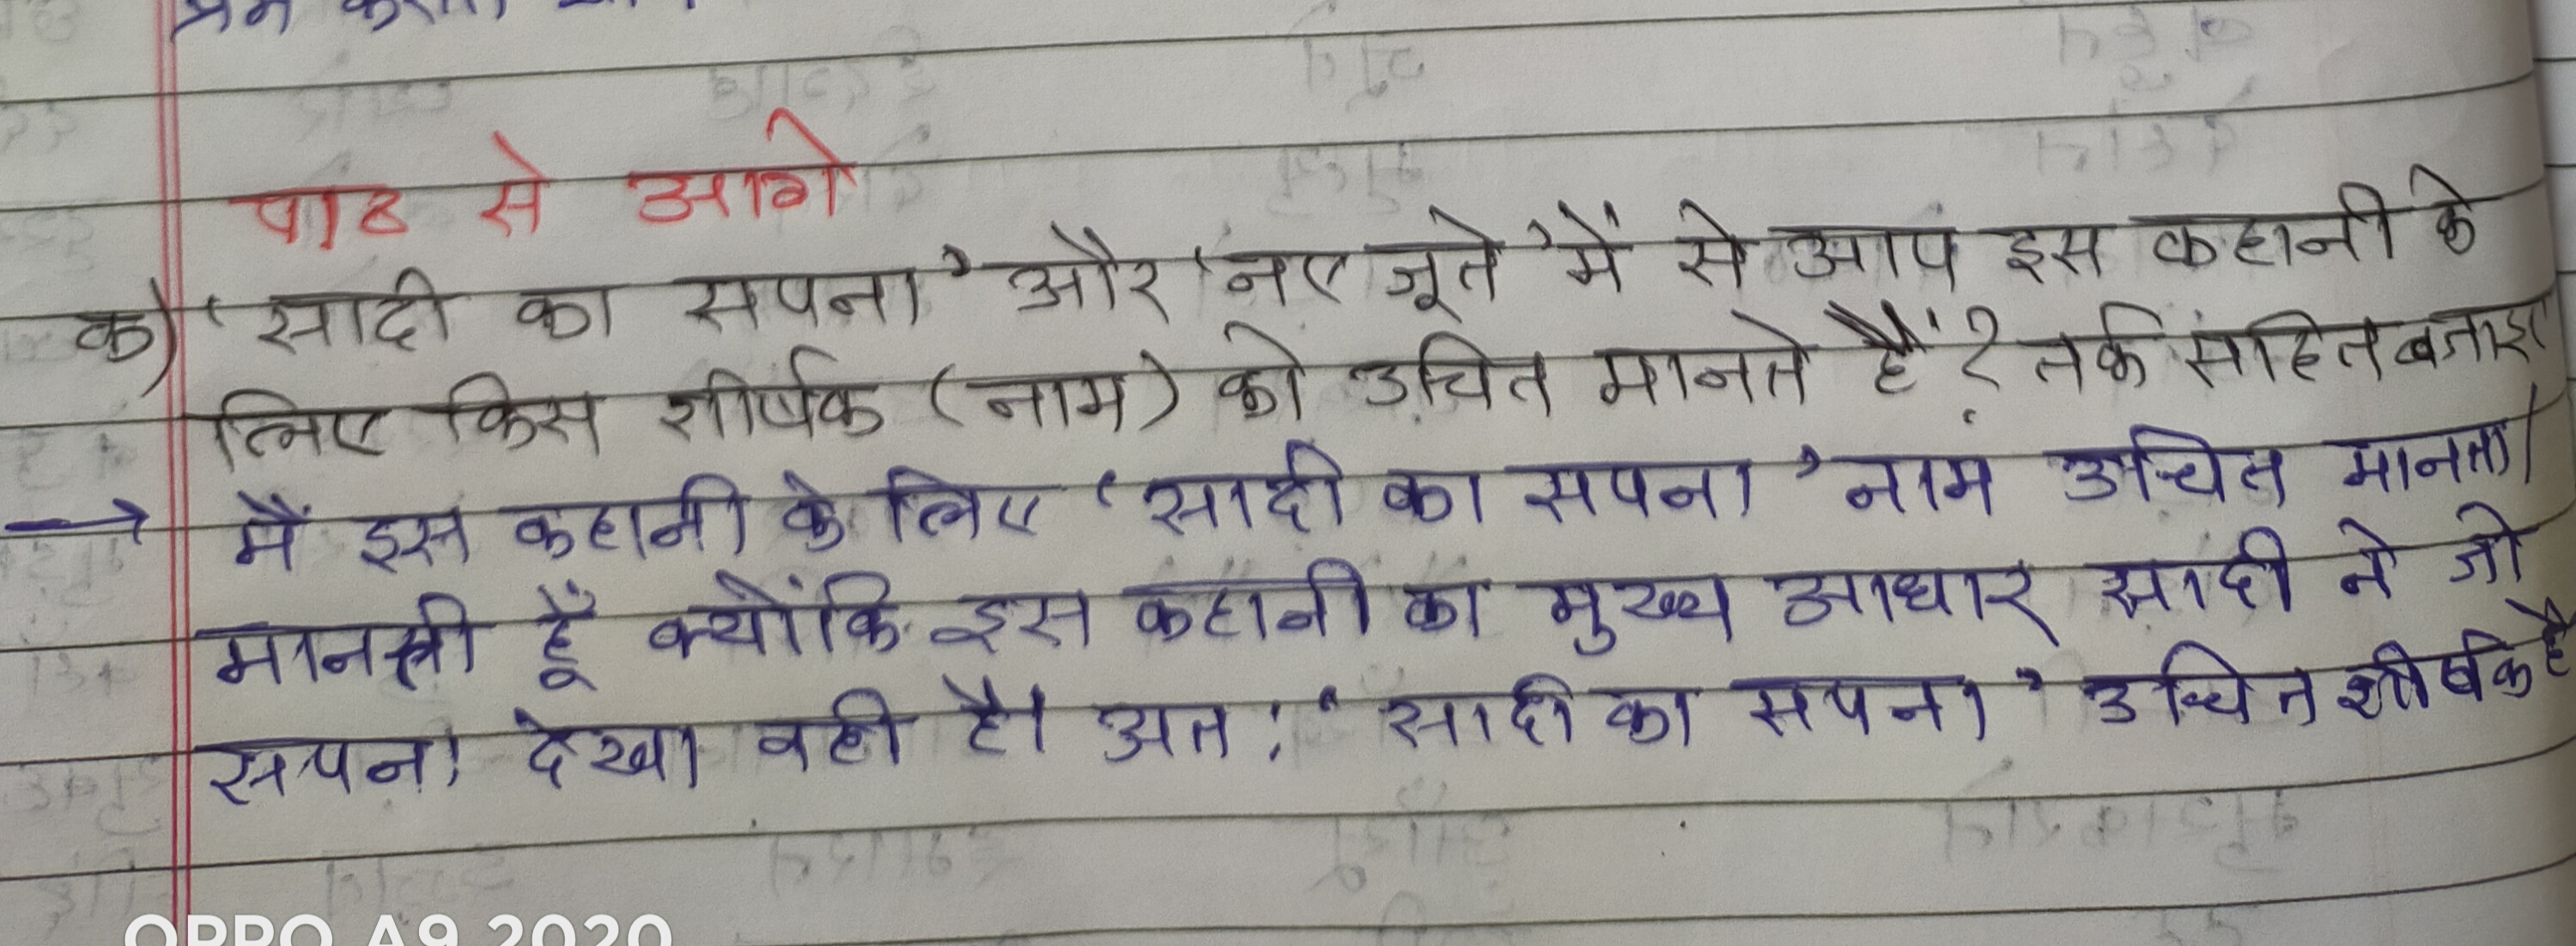 पाठ से आगे
क) 'सादी का सपना' और 'नए जूते' में से आप इस कहानी के
लिए किस शीर्षक (नाम) को उचित मानते हैं? तर्क सहित बताइए
→ मैं इस कहानी के लिए 'सादी का सपना' नाम उचित मानता/
मानती हूँ क्योंकि इस कहानी का मुख्य आधार सादी ने जो
सपना देखा वही है। अत: 'सादी का सपना' उचित शीर्षक है
OPPO A9 2020